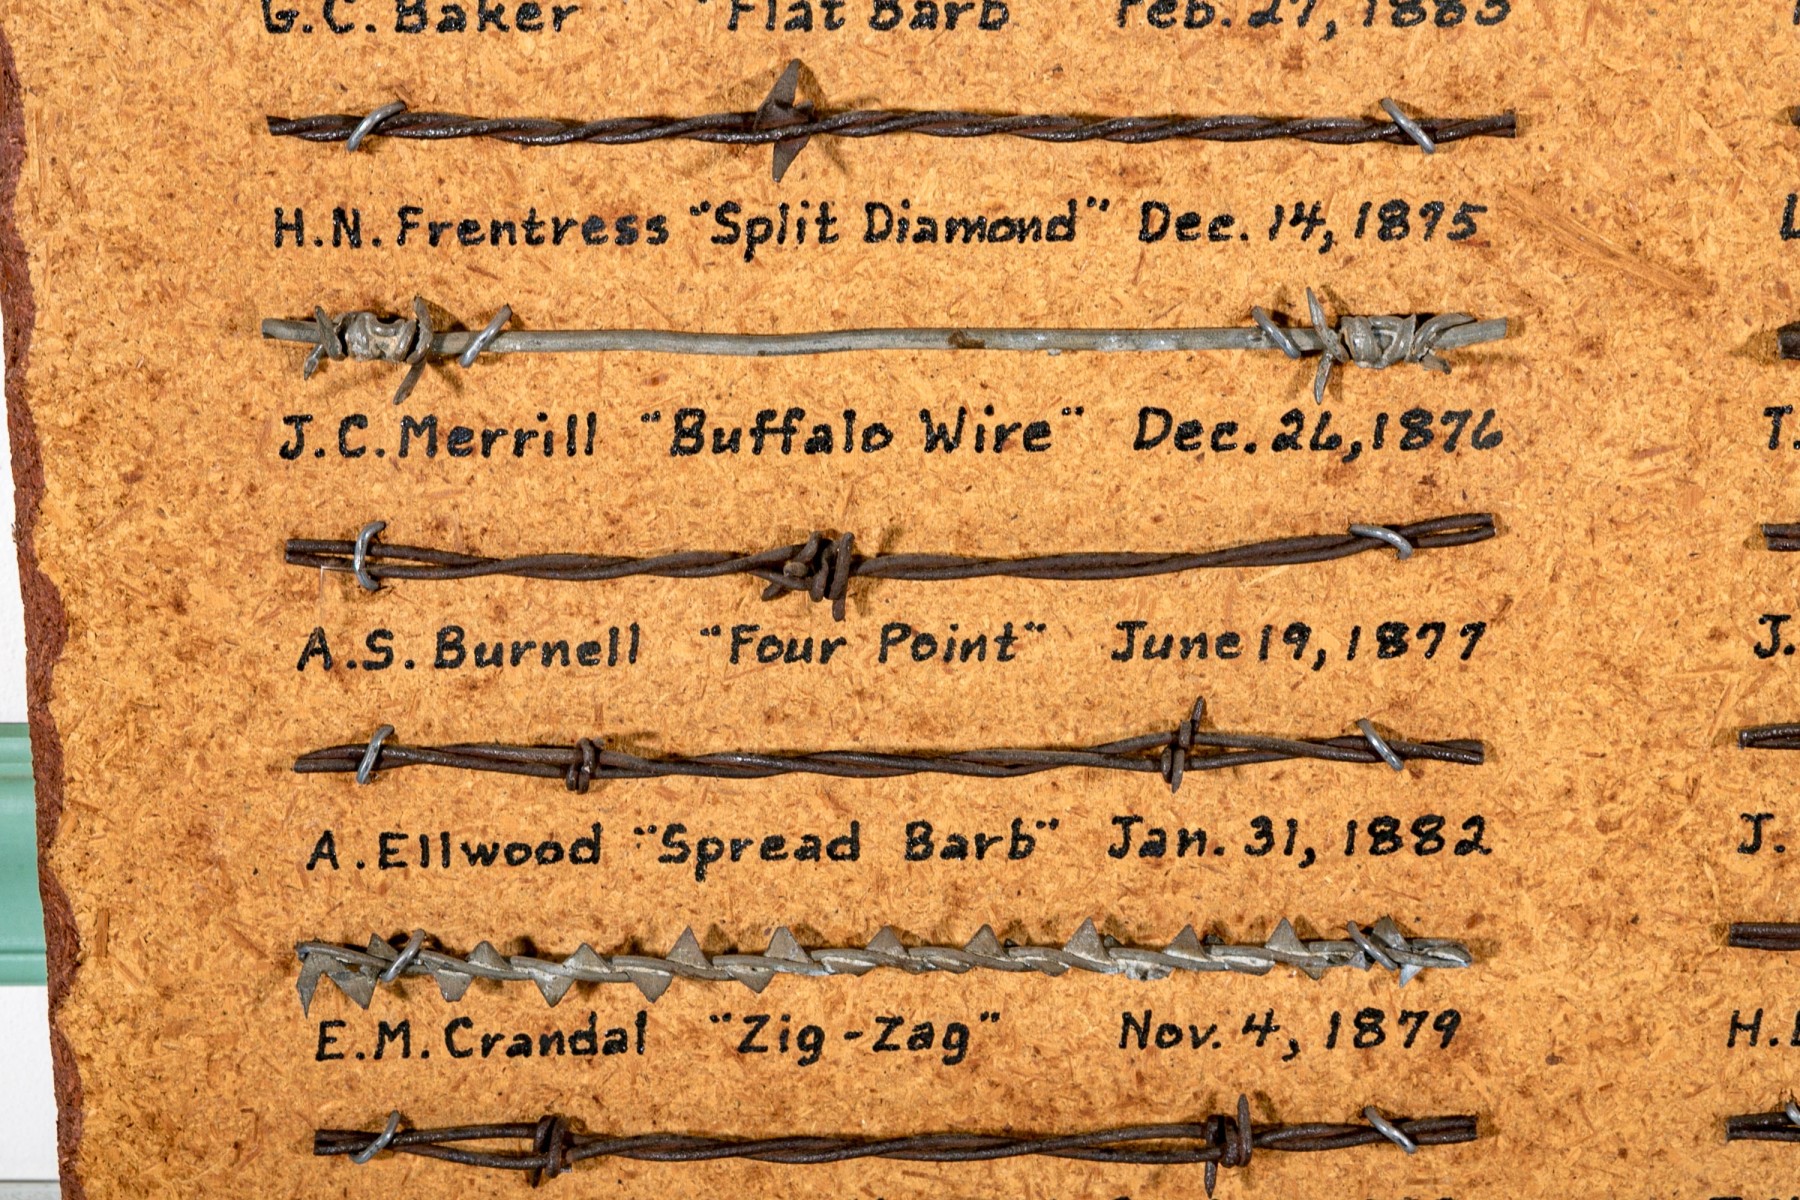 G.C. Baker "Flat Barb" Feb. 27, 1883
H.N. Frentress "Split Diamond" Dec. 14, 1875
L
J.C. Merrill "Buffalo Wire" Dec. 26, 1876
T.
A.S. Burnell "Four Point" June 19, 1877
J.
A. Ellwood "Spread Barb" Jan. 31, 1882
J.
E.M. Crandal "Zig-Zag" Nov. 4, 1879
H.